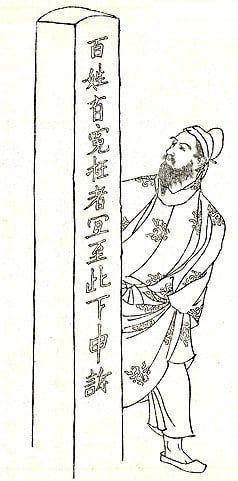 百姓有寃枉者冝至此下申訴